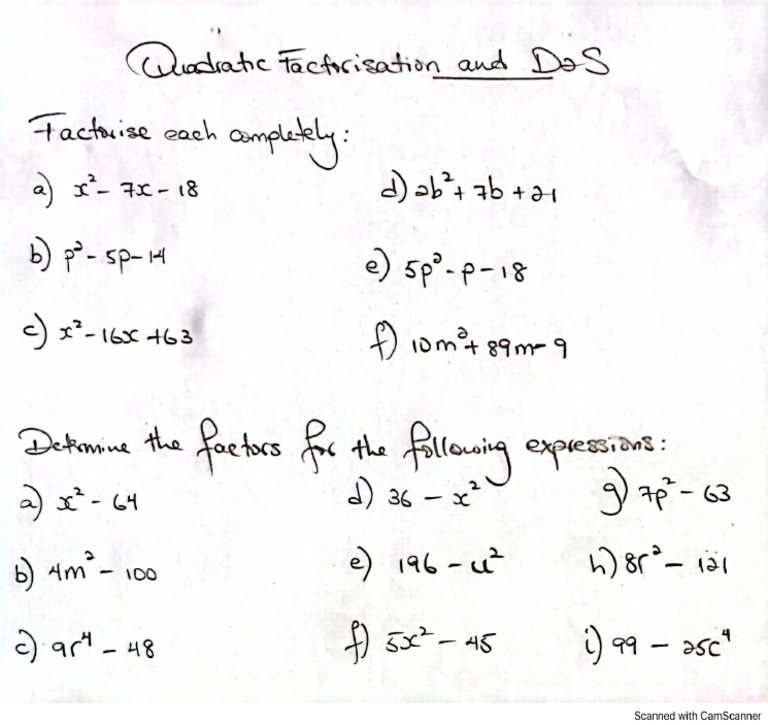 Quadratic Factorisation and D2S
Factorise each completely:
a) x² - 7x - 18
d) 2b² + 7b + 21
b) p² - 5p - 14
e) 5p² - p - 18
c) x² - 16x + 63
f) 10m² + 89m - 9
Determine the factors for the following expressions:
a) x² - 64
d) 36 - x²
g) 7p² - 63
b) 4m² - 100
e) 196 - u²
h) 8r² - 121
c) 9r⁴ - 48
f) 5x² - 45
i) 99 - 25c⁴
Scanned with CamScanner